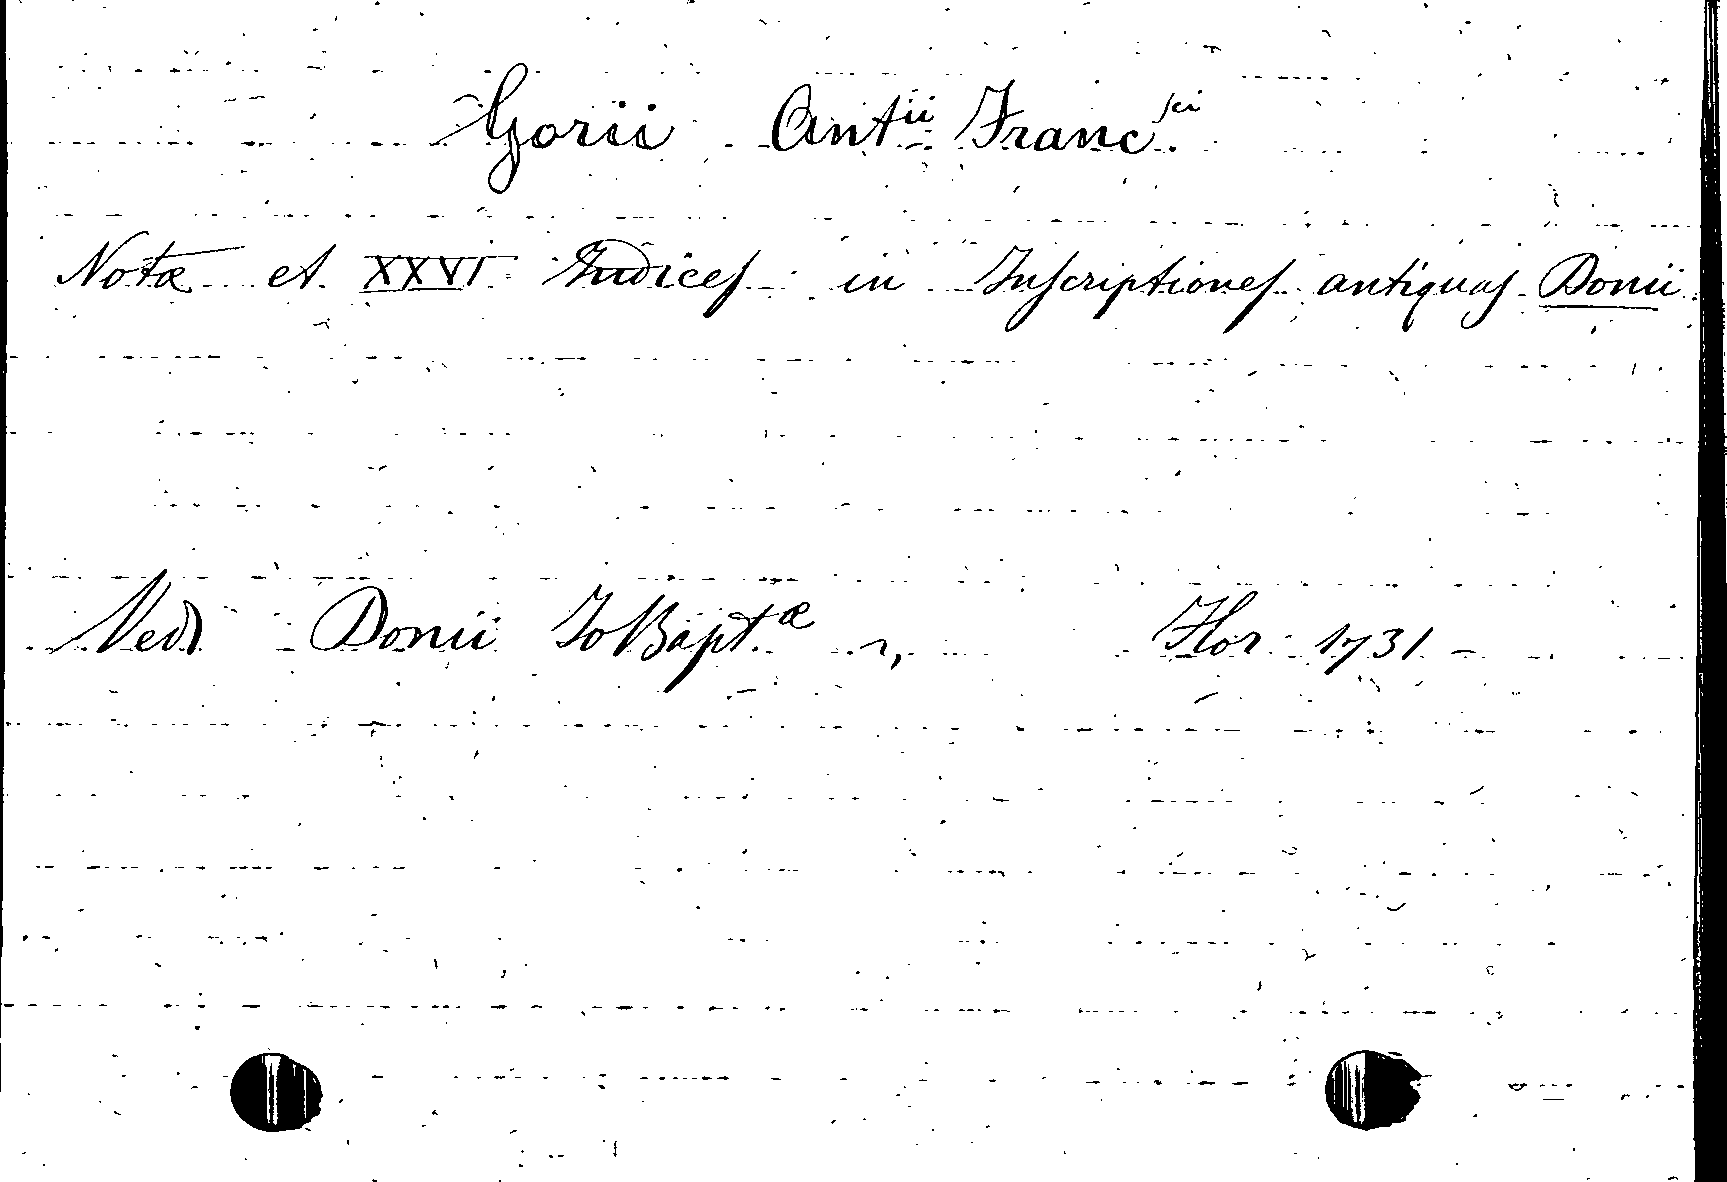 Gorii Antii Francsci.
Notæ et XXVI Indices in Inscriptiones antiquas Donii
Ved Donii Jo Baptæ Flor. 1731 -